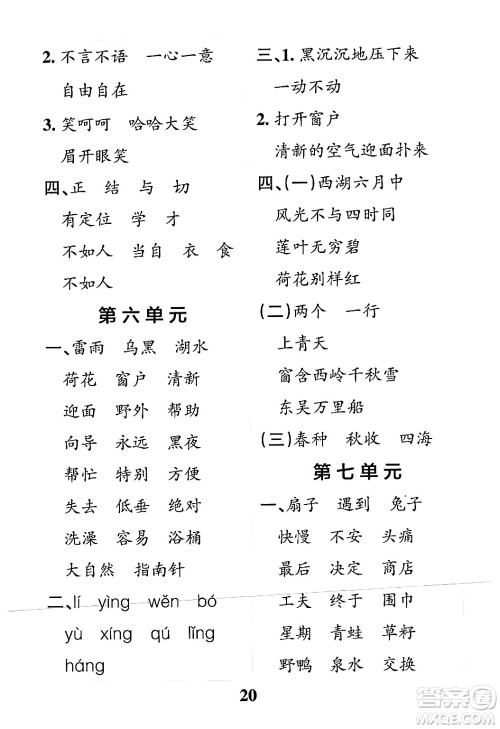 2. 不言不语 一心一意
自由自在
3. 笑呵呵 哈哈大笑
眉开眼笑
四、正 结 与 切
有定位 学 才
不如人 当自 衣 食
不如人
第六单元
一、雷雨 乌黑 湖水
荷花 窗户 清新
迎面 野外 帮助
向导 永远 黑夜
帮忙 特别 方便
失去 低碳 绝对
洗澡 容易 浴桶
大自然 指南针
二、lí yìng wěn bó
yù xíng qú lǐng
háng
三、1. 黑沉沉地压下来
一动不动
2. 打开窗户
清新的空气迎面扑来
四、(一)西湖六月中
风光不与四时同
莲叶无穷碧
荷花别样红
(二)两个 一行
上青天
窗含西岭千秋雪
东吴万里船
(三)春种 秋收 四海
第七单元
一、扇子 遇到 兔子
快慢 不安 头痛
最后 决定 商店
工夫 终于 围巾
星期 青蛙 草籽
野鸭 泉水 交换
20
答案圈
MXQE.COM